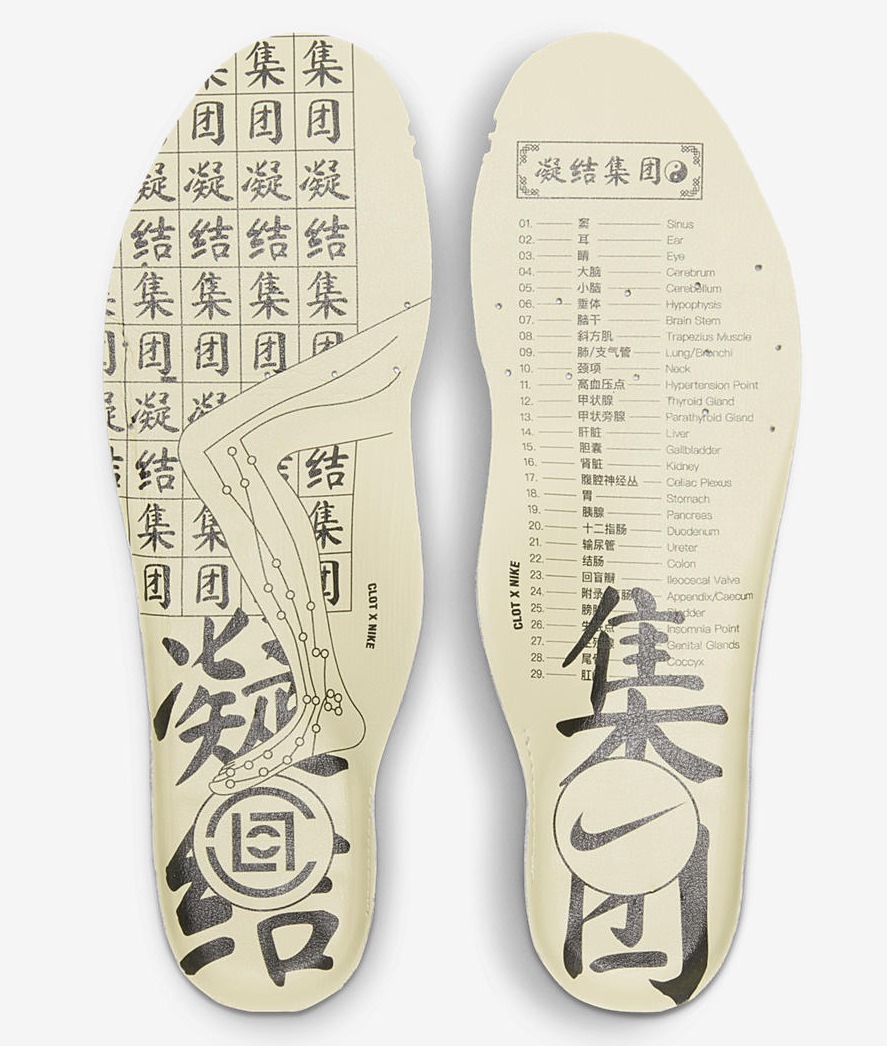 集 集
团 团 团
凝 凝 凝 凝
结 结 结 结
集 集 集 集
团 团 团 团 团
凝 凝 凝
结 结 结
集 集 集
团 团 团
CLOT X NIKE
凝
结
凝结集团
01. 窦 Sinus
02. 耳 Ear
03. 睛 Eye
04. 大脑 Cerebrum
05. 小脑 Cerebellum
06. 垂体 Hypophysis
07. 脑干 Brain Stem
08. 斜方肌 Trapezius Muscle
09. 肺/支气管 Lung/Bronchi
10. 颈项 Neck
11. 高血压点 Hypertension Point
12. 甲状腺 Thyroid Gland
13. 甲状旁腺 Parathyroid Gland
14. 肝脏 Liver
15. 胆囊 Gallbladder
16. 肾脏 Kidney
17. 腹腔神经丛 Celiac Plexus
18. 胃 Stomach
19. 胰腺 Pancreas
20. 十二指肠 Duodenum
21. 输尿管 Ureter
22. 结肠 Colon
23. 回盲瓣 Ileocecal Valve
24. Appendix/Caecum
25. Bladder
26. Insomnia Point
27. Genital Glands
28. Coccyx
29.
CLOT X NIKE
集
团